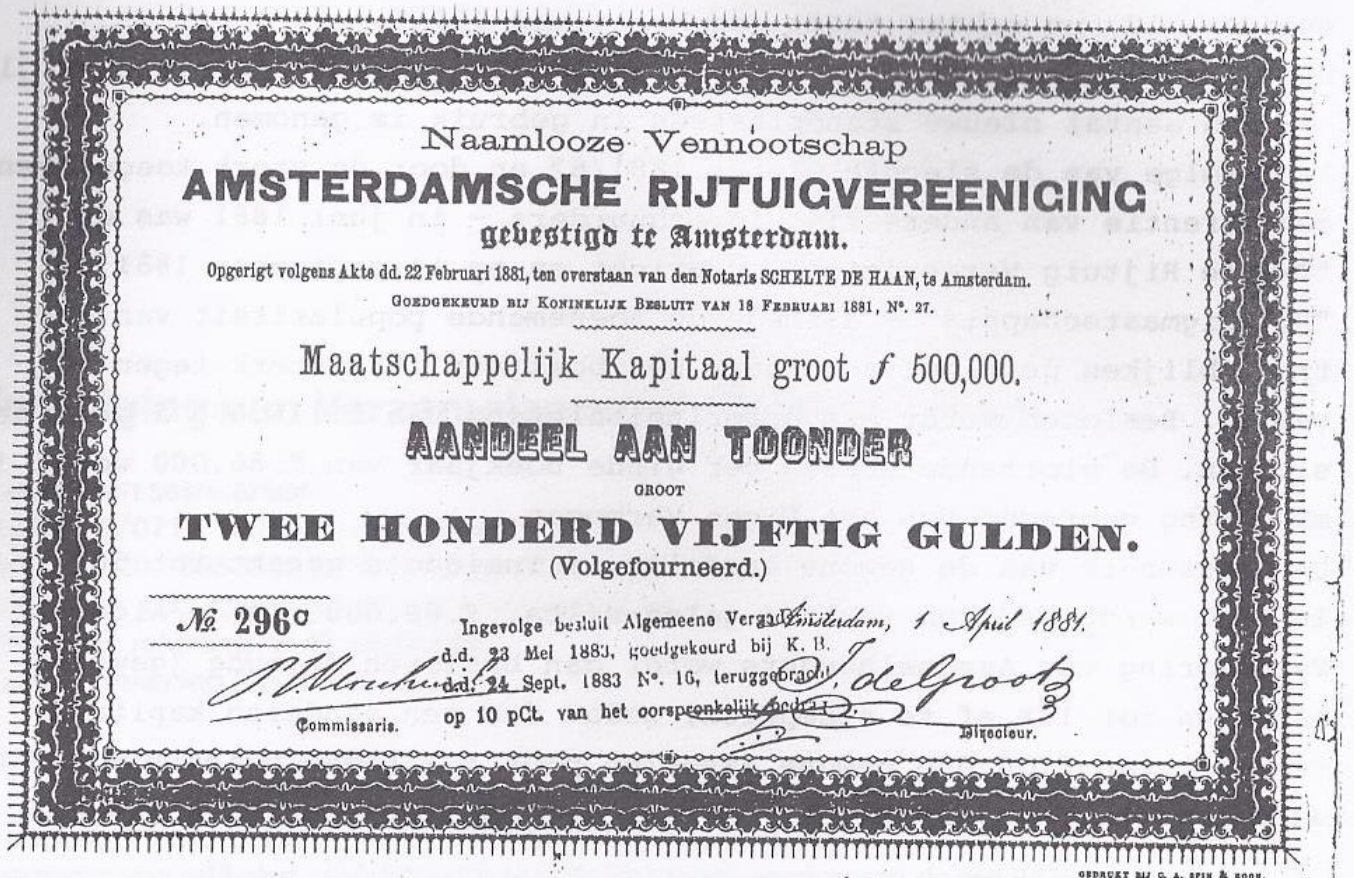 Naamlooze Vennootschap
AMSTERDAMSCHE RIJTUIGVEREENIGING
gevestigd te Amsterdam.
Opgerigt volgens Akte dd. 22 Februari 1881, ten overstaan van den Notaris SCHELTE DE HAAN, te Amsterdam.
GOEDGEKEURD BIJ KONINKLIJK BESLUIT VAN 18 FEBRUARI 1881, No. 27.
Maatschappelijk Kapitaal groot f 500,000.
AANDEEL AAN TOONDER
GROOT
TWEE HONDERD VIJFTIG GULDEN.
(Volgefourneerd.)
No 296
Amsterdam, 1 April 1881
Ingevolge besluit Algemeene
d.d. 23 Mei 1883, goedgekeurd bij K. B.
d.d. 24 Sept. 1883 No. 16, teruggebracht
op 10 pCt. van het oorspronkelijk
T. de Groot
Commissaris.
Directeur.
GEDRUKT BIJ C. A. SPIN & ZOON.